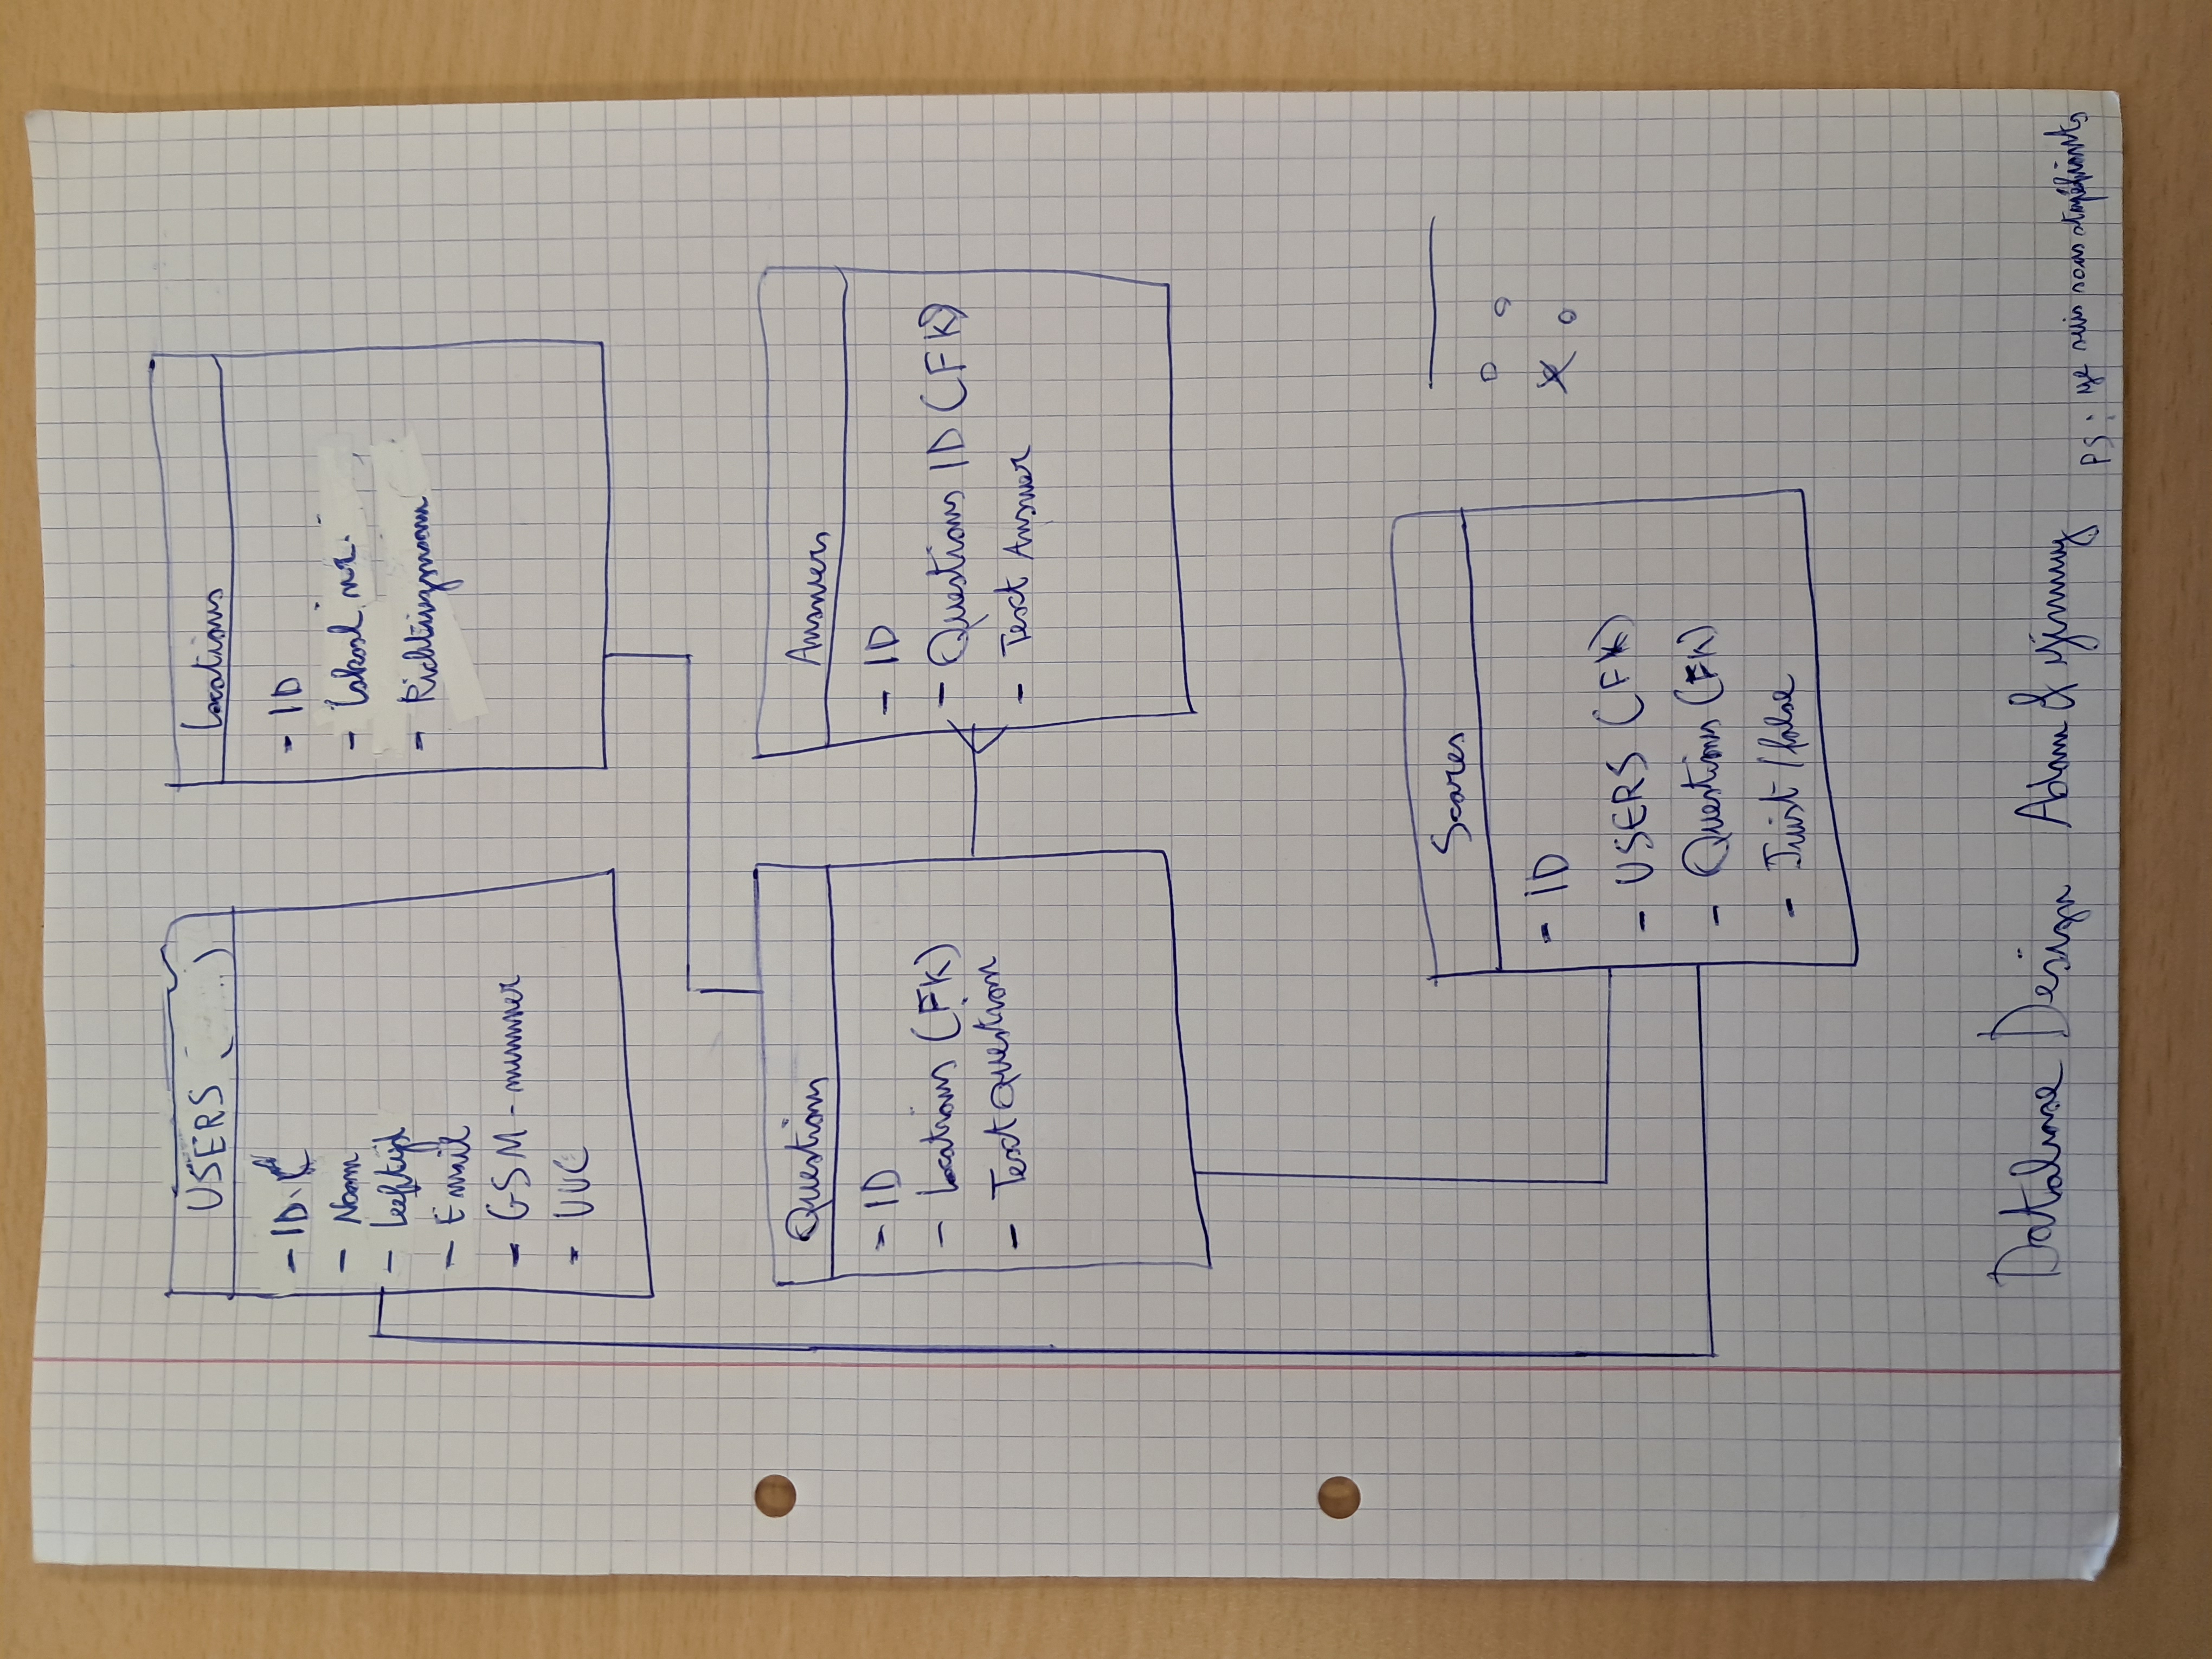 USERS ( )
- ID
- Naam
- Leeftijd
- Email
- GSM-nummer
- VVC
Locations
- ID
- Lokaal nr.
- Richtingnaam
Questions
- ID
- Locations (FK)
- Text Question
Answers
- ID
- Questions ID (FK)
- Text Answer
Scores
- ID
- USERS (FK)
- Questions (FK)
- Juist/false
Database Design Adam & yimmy
PS: je suis sous stupéfiants